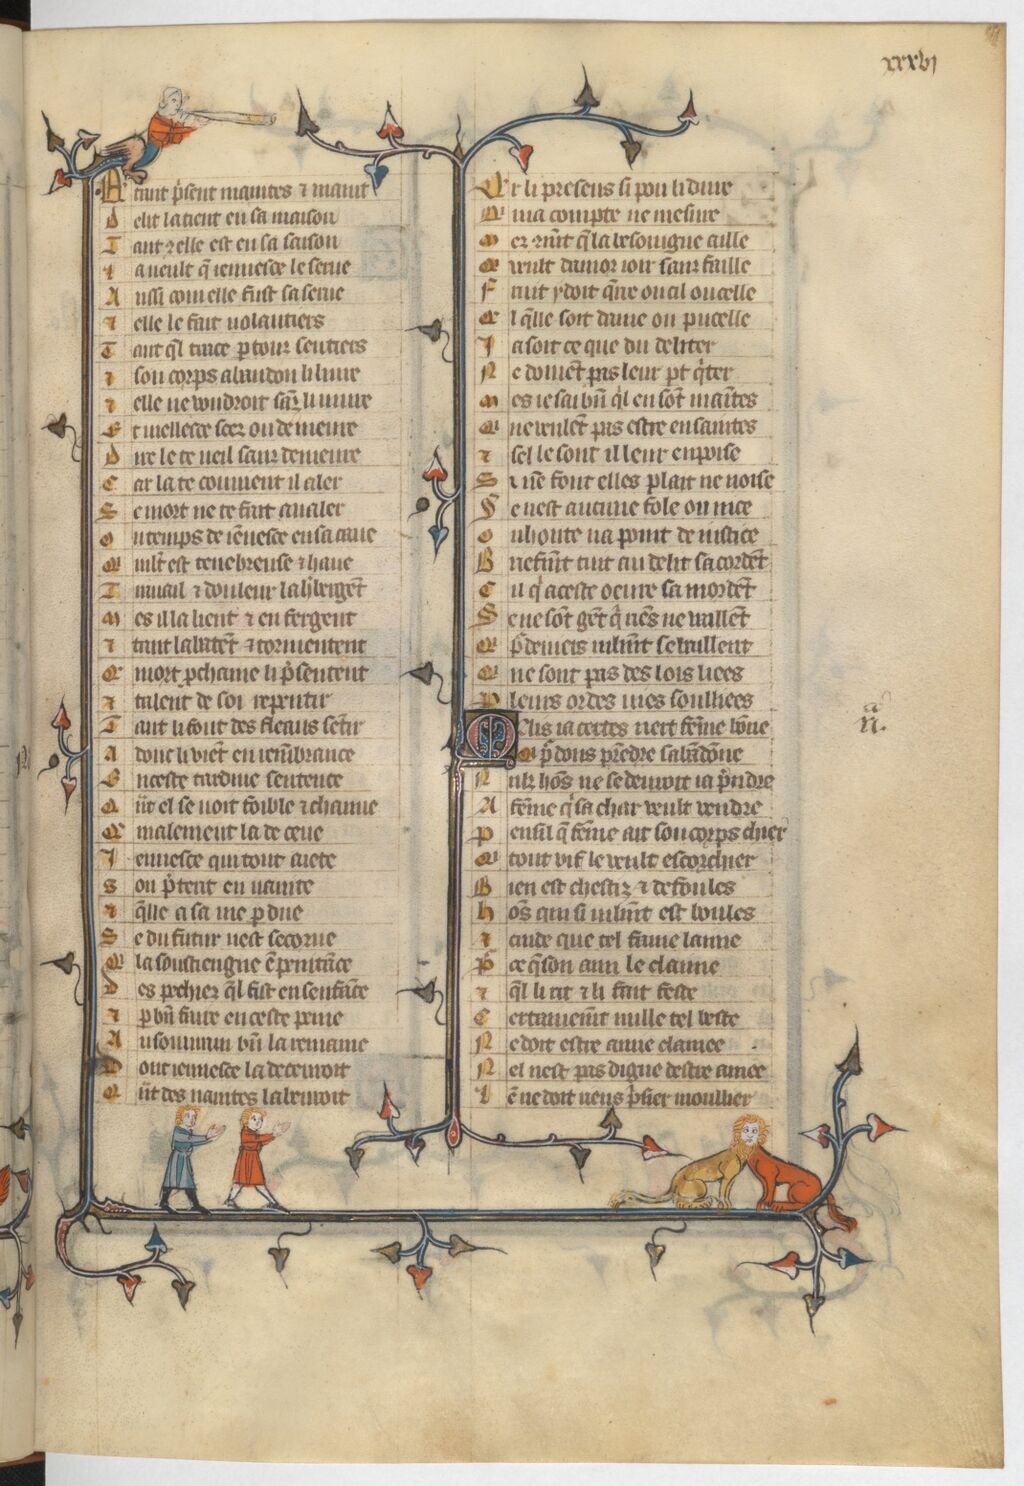 xxxvi
A tant p̄sent maintes ⁊ maint
D elit la tient en sa maison
T ant ⁊ elle est en sa saison
⁊ a veult q̄ iennesce le serue
A ussi com elle fust sa serue
⁊ elle le fait uolantiers
T ant ql trace p tour sentiers
⁊ son corps abandon li liure
⁊ elle ne voudroit sanz li uiure
E t viellesce scez ou demeure
D ire le te ueil sanz demeure
C ar la te couuient il aler
S e mort ne te fait aualer
O u temps de ieñesce en sa caue
Q ui lt est tenebreuse ⁊ haue
T rauail ⁊ douleur la hbergēt
M es il la lient ⁊ enfergent
⁊ tant la batēt ⁊ tormentent
Q mort pchaine li p̄sentent
⁊ talent de soi repentir
T ant li font des fleaus sētir
A donc li viēt en remēbrance
E n ceste tardiue sentence
Q ūt el se uoit foible ⁊ chanue
Q malement la deceue
I ennesce qui tout a iete
S on p̄terit en uanite
⁊ qlle a sa uie pdue
S e du futur nest secorue
Q la soustiengne ē penitāce
D es pechiez ql fist en senfāce
⁊ p bn̄ faire en ceste peine
A u souuerain bn̄ la remaine
D ont iennesce la deceuoit
Q ūt des uanites labeuroit
E t li presens si pou li dure
Q uil ni a compte ne mesure
M es cōmt q̄ la besoingne aille
Q ueult damor ioir sanz faille
F ruit y doit q̄rre ou cil ou celle
Q l q̄lle soit dame ou pucelle
I a soit ce que du deliter
N e doiuēt pas leur pt q̇ter
M es ie sai bn̄ ql en sōt maītes
Q ne veulēt pas estre ensaintes
⁊ sel le sont il leur en poise
S i nē font elles plait ne noise
S e nest aucune fole ou nice
O u honte na point de iustice
B riefm̄t tuit au delit sacordēt
C il q̇ a ceste oeure samordēt
S e ne sōt gēt q̇ riēs ne vaillēt
Q p̄ deniers uilmt se baillent
Q ne sont pas des lois liees
P leurs ordes uies soulliees
M es ia certes niert fēme bōne
Q p̄ dons pn̄dre sabādōne
N ulz hōs ne se deuroit ia p̄ndre
A fēme q̇ sa char veult vendre
P ensil q̄ fēme ait son corps chier
Q tout vif le veult escorchier
B ien est chestiz ⁊ defoules
H ōs qui si uilmt est boules
⁊ cuide que tel fame laime
P ce q̄ son ami le claime
⁊ ql li rit ⁊ li fait feste
C ertainemt nulle tel beste
N e doit estre amie clamee
N el nest pas digne destre amee
L ē ne doit riens p̄sier moullier
n̄.